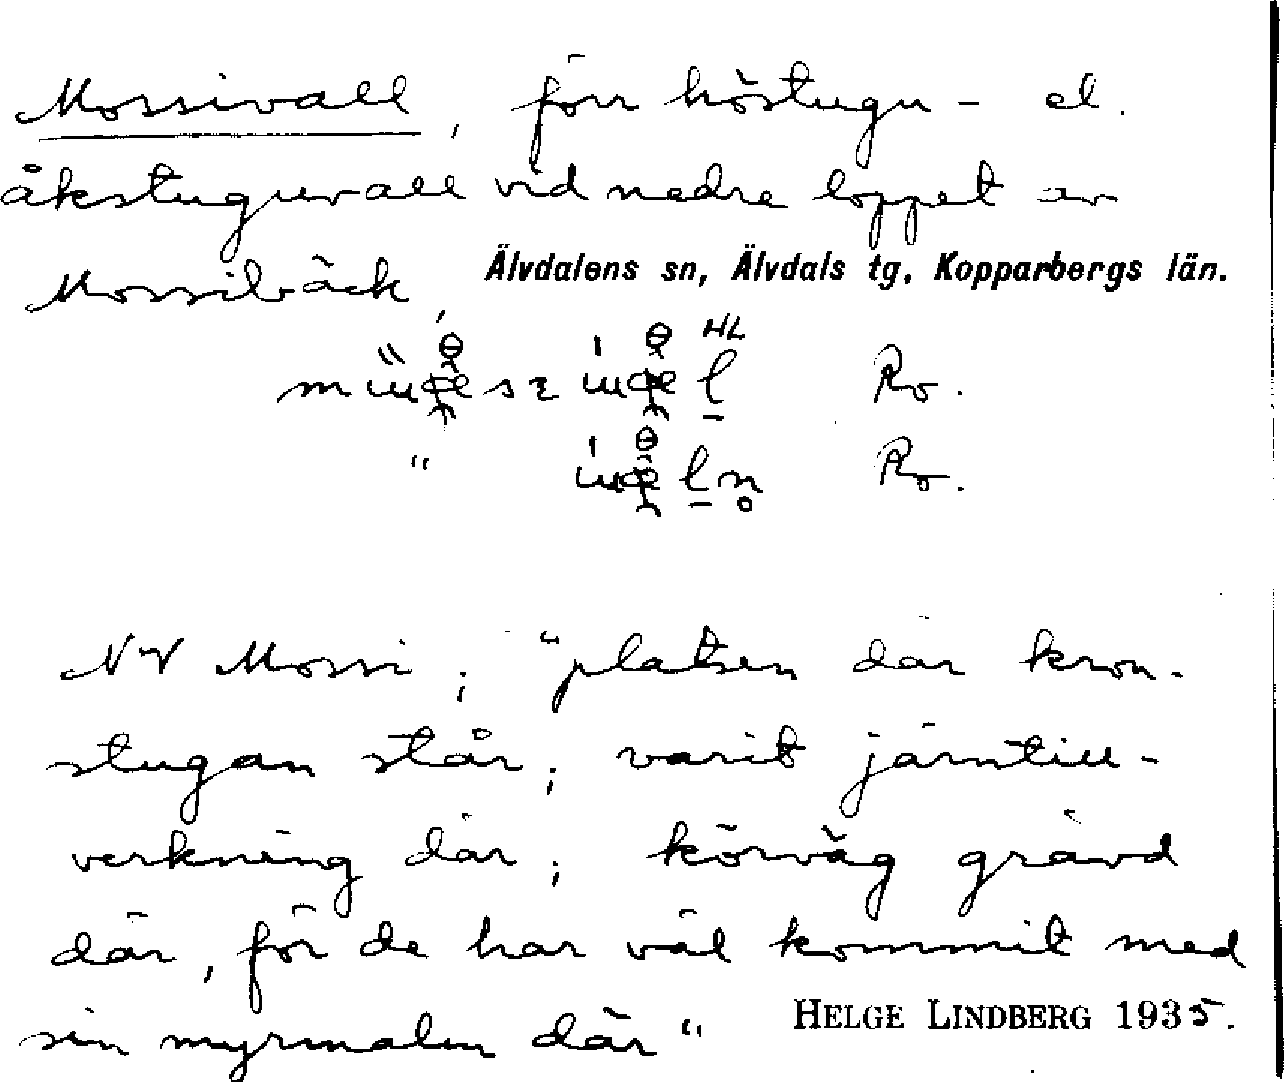 Mossivall, förr höstugu- el.
åkstuguvall vid nedre loppet av
Mossibäck Älvdalens sn, Älvdals tg, Kopparbergs län.
HL
Ro.
" Ro.
NV Mossi; "platsen där kron-
stugan står; varit järntill-
verkning där; körväg grävd
där, för de har väl kommit med
sin myrmalm där"
HELGE LINDBERG 1935.